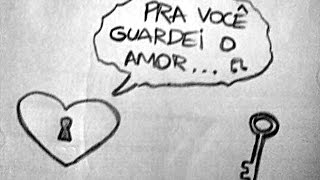 PRA VOCÊ
GUARDEI O
AMOR...